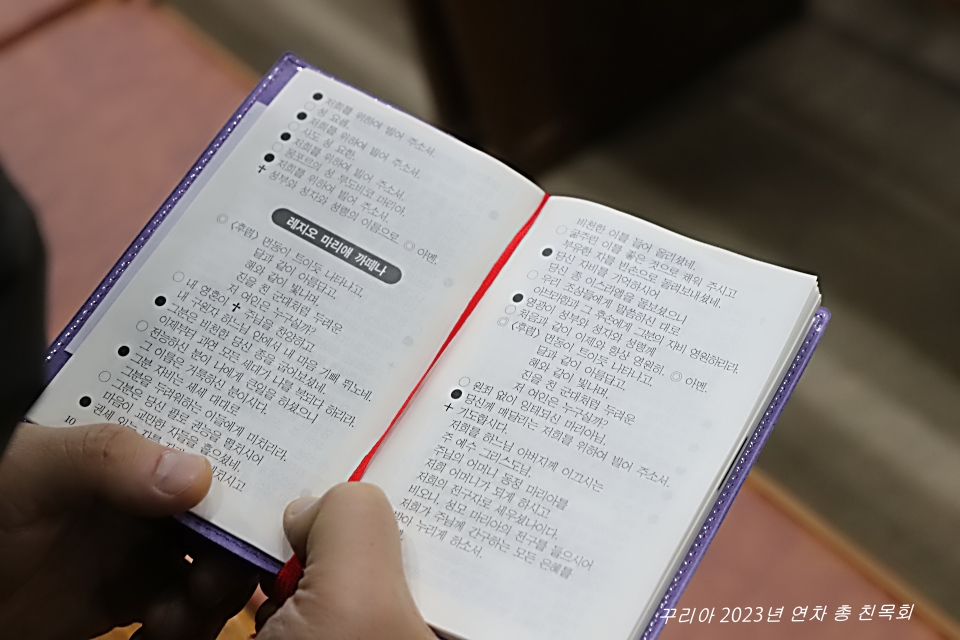 ● 저희를 위하여 빌어 주소서.
○ 성 요셉,
● 저희를 위하여 빌어 주소서.
○ 사도 성 요한,
● 저희를 위하여 빌어 주소서.
○ 몽포르의 성 루도비코 마리아,
● 저희를 위하여 빌어 주소서.
✝ 성부와 성자와 성령의 이름으로 ◎ 아멘.
레지오 마리애 까떼나
◎ 〈후렴〉 먼동이 트이듯 나타나고,
달과 같이 아름답고,
해와 같이 빛나며,
진을 친 군대처럼 두려운
저 여인은 누구실까?
○ 내 영혼이 ✝ 주님을 찬양하고,
내 구원자 하느님 안에서 내 마음 기뻐 뛰노네.
● 그분은 비천한 당신 종을 굽어보셨네.
이제부터 과연 모든 세대가 나를 복되다 하리라.
○ 전능하신 분이 나에게 큰일을 하셨으니
그 이름은 거룩하신 분이시다.
● 그분 자비는 세세 대대로
그분을 두려워하는 이들에게 미치리라.
○ 그분은 당신 팔로 권능을 떨치시어
마음이 교만한 자들을 흩으셨네.
● 권세 있는 자를
10
비천한 이를 들어 올리셨네.
○ 굶주린 이를 좋은 것으로 채워 주시고
부유한 자를 빈손으로 돌려보내셨네.
● 당신 자비를 기억하시어
당신 종 이스라엘을 돌보셨으니
○ 우리 조상들에게 말씀하신 대로
아브라함과 그 후손에게 그분의 자비 영원하리라.
● 영광이 성부와 성자와 성령께
○ 처음과 같이 이제와 항상 영원히. ◎ 아멘.
◎ 〈후렴〉 먼동이 트이듯 나타나고,
달과 같이 아름답고,
해와 같이 빛나며,
진을 친 군대처럼 두려운
저 여인은 누구실까?
○ 원죄 없이 잉태되신 마리아님,
● 당신께 매달리는 저희를 위하여 빌어 주소서.
✝ 기도합시다.
저희를 하느님 아버지께 이끄시는
주 예수 그리스도님,
주님의 어머니 동정 마리아를
저희 어머니가 되게 하시고
저희의 전구자로 세우셨나이다.
비오니, 성모 마리아의 전구를 들으시어
저희가 주님께 간구하는 모든 은혜를
받아 누리게 하소서.
꾸리아 2023년 연차 총 친목회